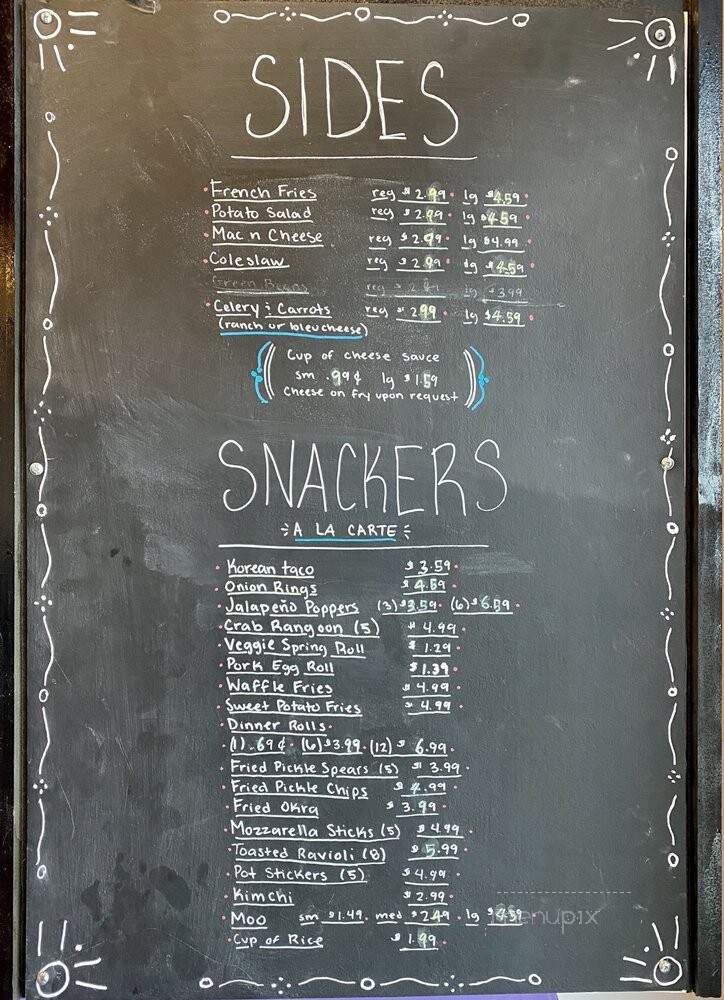 SIDES
French Fries reg $2.99 lg $4.59
Potato Salad reg $2.99 lg $4.59
Mac n Cheese reg $2.99 lg $4.99
Coleslaw reg $2.99 lg $4.59
Green Beans reg $3.99
Celery & Carrots reg $2.99 lg $4.59
(ranch ur bleu cheese)
Cup of cheese sauce
sm .99¢ lg $1.59
Cheese on fry upon request
SNACKERS
A LA CARTE
Korean taco $3.59
Onion Rings $4.59
Jalapeño Poppers (3) $3.59 (6) $6.59
Crab Rangoon (5) $4.99
Veggie Spring Roll $1.29
Pork Egg Roll $1.39
Waffle Fries $4.99
Sweet Potato Fries $4.99
Dinner Rolls
(1) .69¢ (6) $3.99 (12) $6.99
Fried Pickle Spears (5) $3.99
Fried Pickle Chips $4.99
Fried Okra $3.99
Mozzarella Sticks (5) $4.99
Toasted Ravioli (8) $5.99
Pot Stickers (5) $4.99
Kimchi $2.99
Moo sm $1.49 med $2.49 lg $4.59
Cup of Rice $1.99
menupix